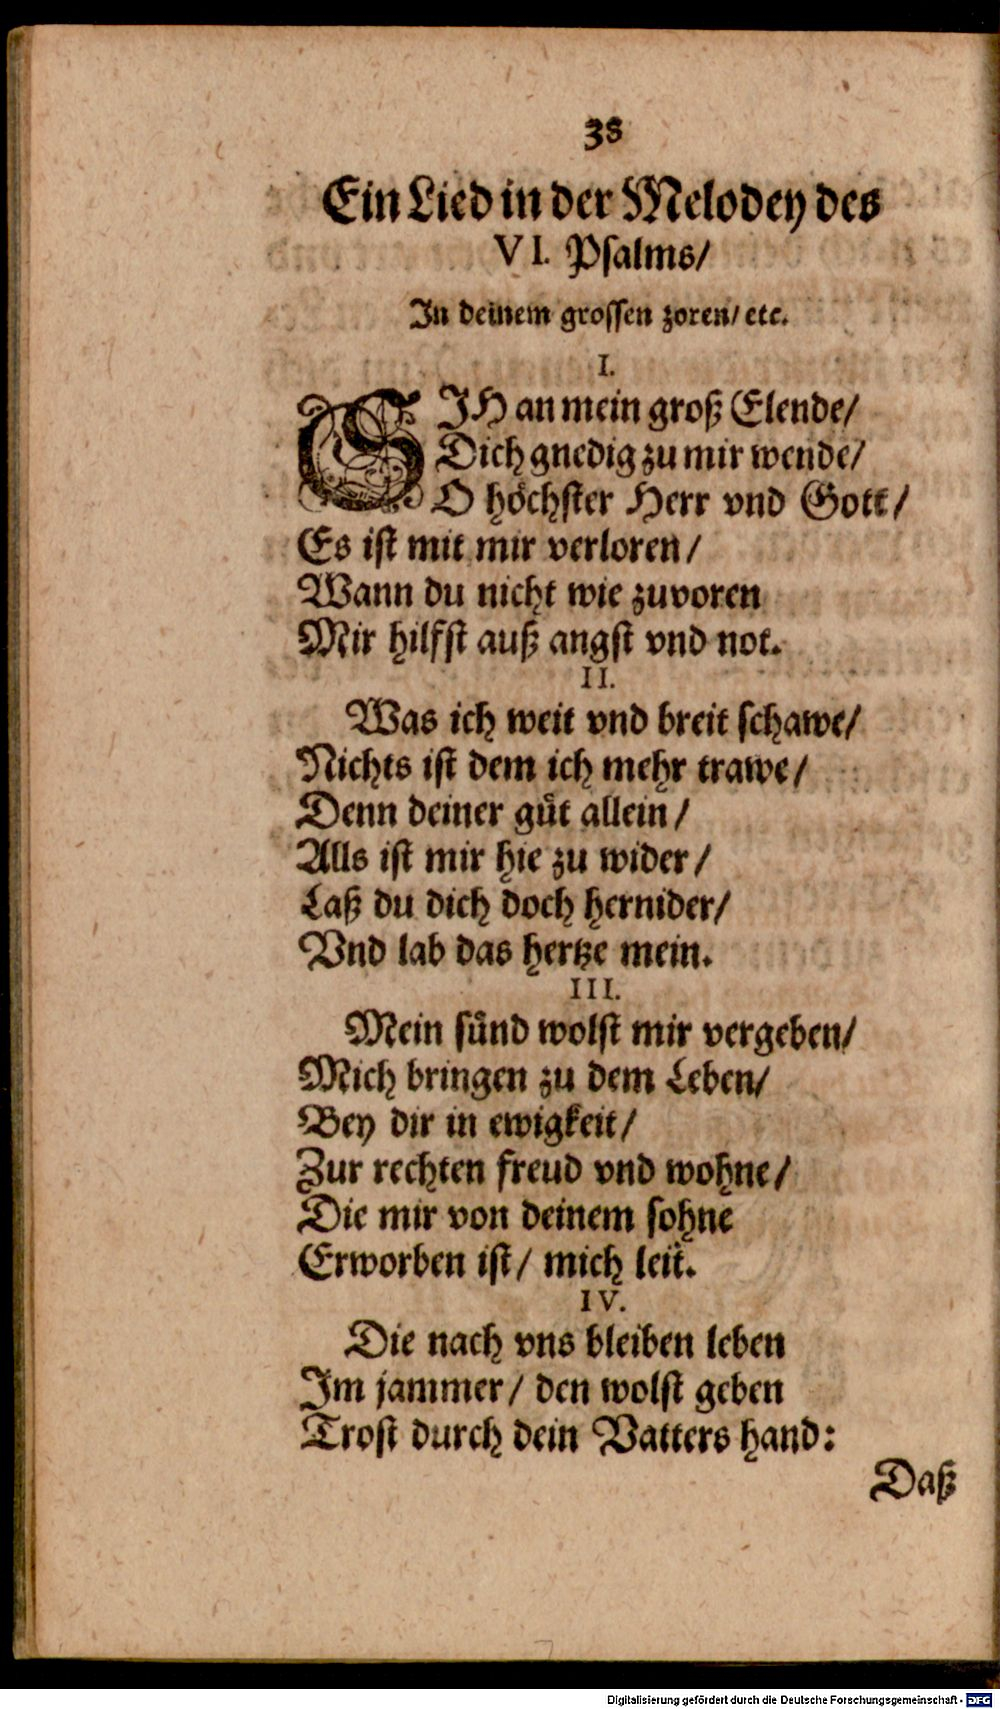 38
Ein Lied in der Melodey des
VI. Psalms/
In deinem grossen zoren/ etc.
I.
SIH an mein groß Elende/
Dich gnedig zu mir wende/
O höchster Herr vnd Gott/
Es ist mit mir verloren/
Wann du nicht wie zuvoren
Mir hilfst auß angst vnd not.
II.
Was ich weit vnd breit schawe/
Nichts ist dem ich mehr trawe/
Denn deiner guͤt allein/
Alls ist mir hie zu wider/
Laß du dich doch hernider/
Vnd lab das hertze mein.
III.
Mein suͤnd wolst mir vergeben/
Mich bringen zu dem Leben/
Bey dir in ewigkeit/
Zur rechten freud vnd wohne/
Die mir von deinem sohne
Erworben ist/ mich leit.
IV.
Die nach vns bleiben leben
Im jammer/ den wolst geben
Trost durch dein Vatters hand:
Daß
Digitalisierung gefördert durch die Deutsche Forschungsgemeinschaft - DFG